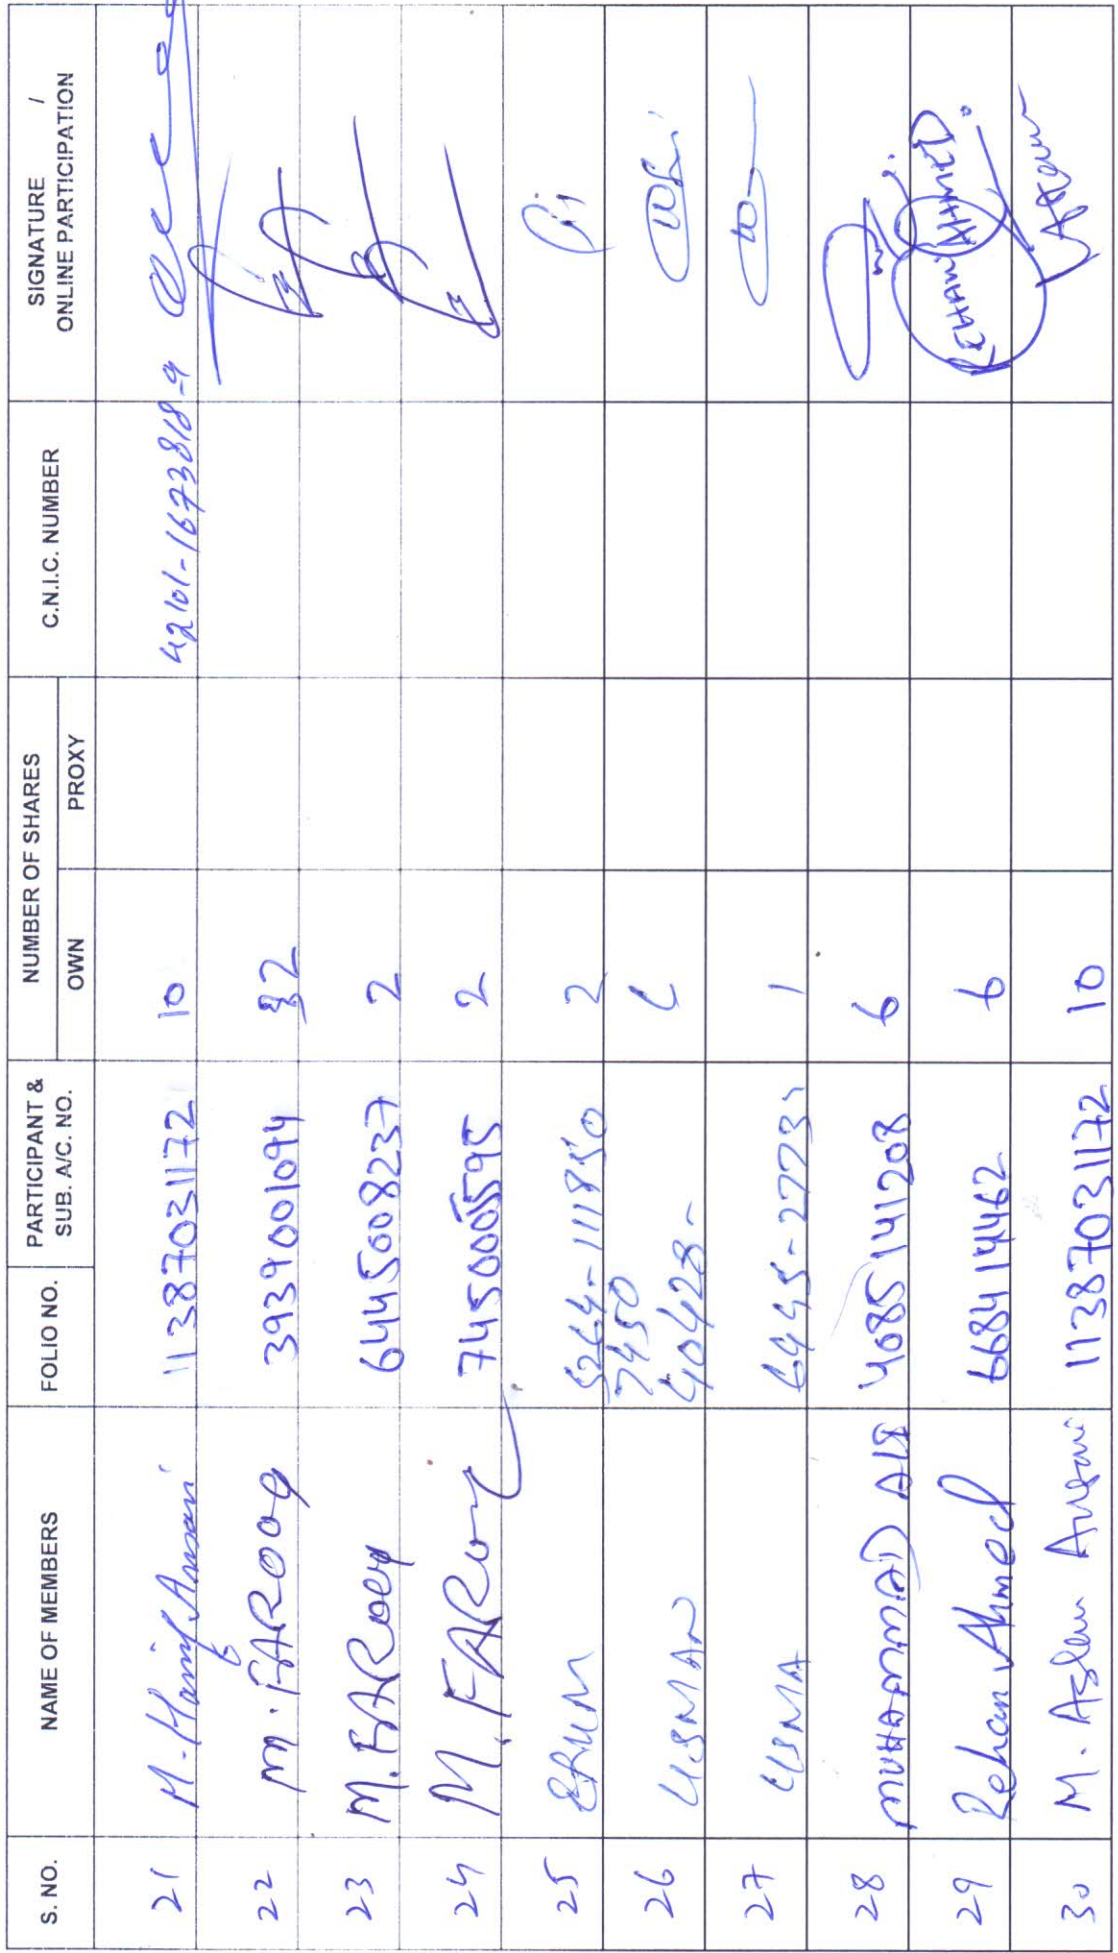 S. NO. NAME OF MEMBERS FOLIO NO. PARTICIPANT & SUB. A/C. NO. NUMBER OF SHARES OWN PROXY C.N.I.C. NUMBER SIGNATURE / ONLINE PARTICIPATION
21 M. Hanif Ansari 11387031172 10 42101-1673818-9
22 M. FAROOQ 3939001094 2
23 M. FAROOQ 6445008237 2
24 M. FAROOQ 7450005595 2
25 ERUM 5264-111850 2
26 USMAN 7450 40428-
27 USMA 6445-27731 1
28 MUHAMMAD ALI 4085141208 6
29 Rehan Ahmed 668414462 6 REHAN AHMED
30 M. Aslam Ansari 11387031172 10